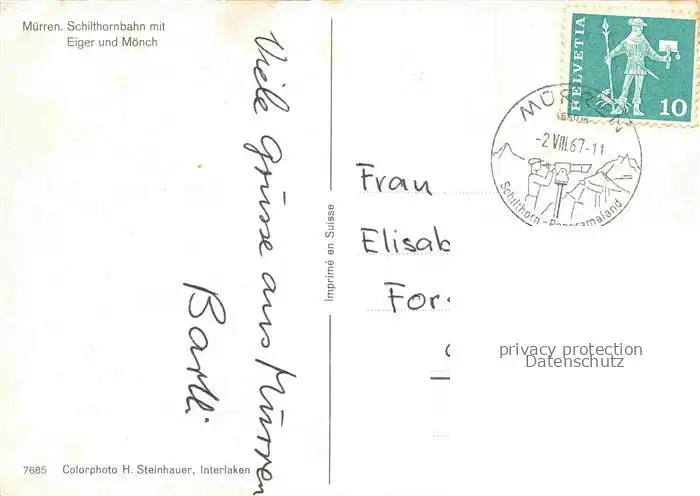 Mürren. Schilthornbahn mit
Eiger und Mönch
Viele Grüsse aus Mürren
Bartli
Imprimé en Suisse
7685 Colorphoto H. Steinhauer, Interlaken
HELVETIA
10
MÜRREN
1650m
-2.VIII.67-11
Schilthorn-Panoramaland
Frau
Elisab
For
privacy protection
Datenschutz